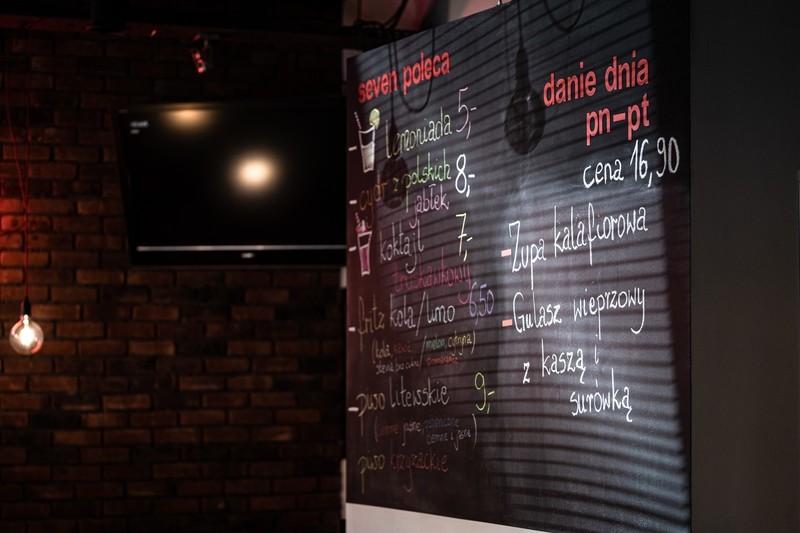 seven poleca
lemoniada 5,-
cydr z polskich 8,-
jabłek
koktajl 7,-
truskawkowy
fritz kola/limo 6,50
piwo litewskie 9,-
ciemne i jasne)
piwo krzyżackie
danie dnia
pn-pt
cena 16,90
-Zupa kalafiorowa
-Gulasz wieprzowy
z kaszą i
surówką